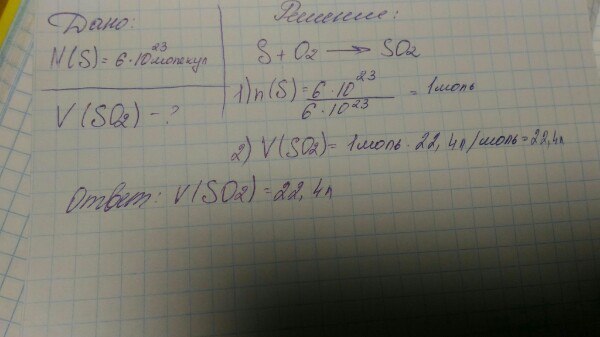 Дано:
N(S) = 6·10²³ молекул
V(SO2) - ?
Решение:
S + O2 → SO2
1) n(S) = 6·10²³ / 6·10²³ = 1 моль
2) V(SO2) = 1 моль · 22,4 л/моль = 22,4 л
Ответ: V(SO2) = 22,4 л